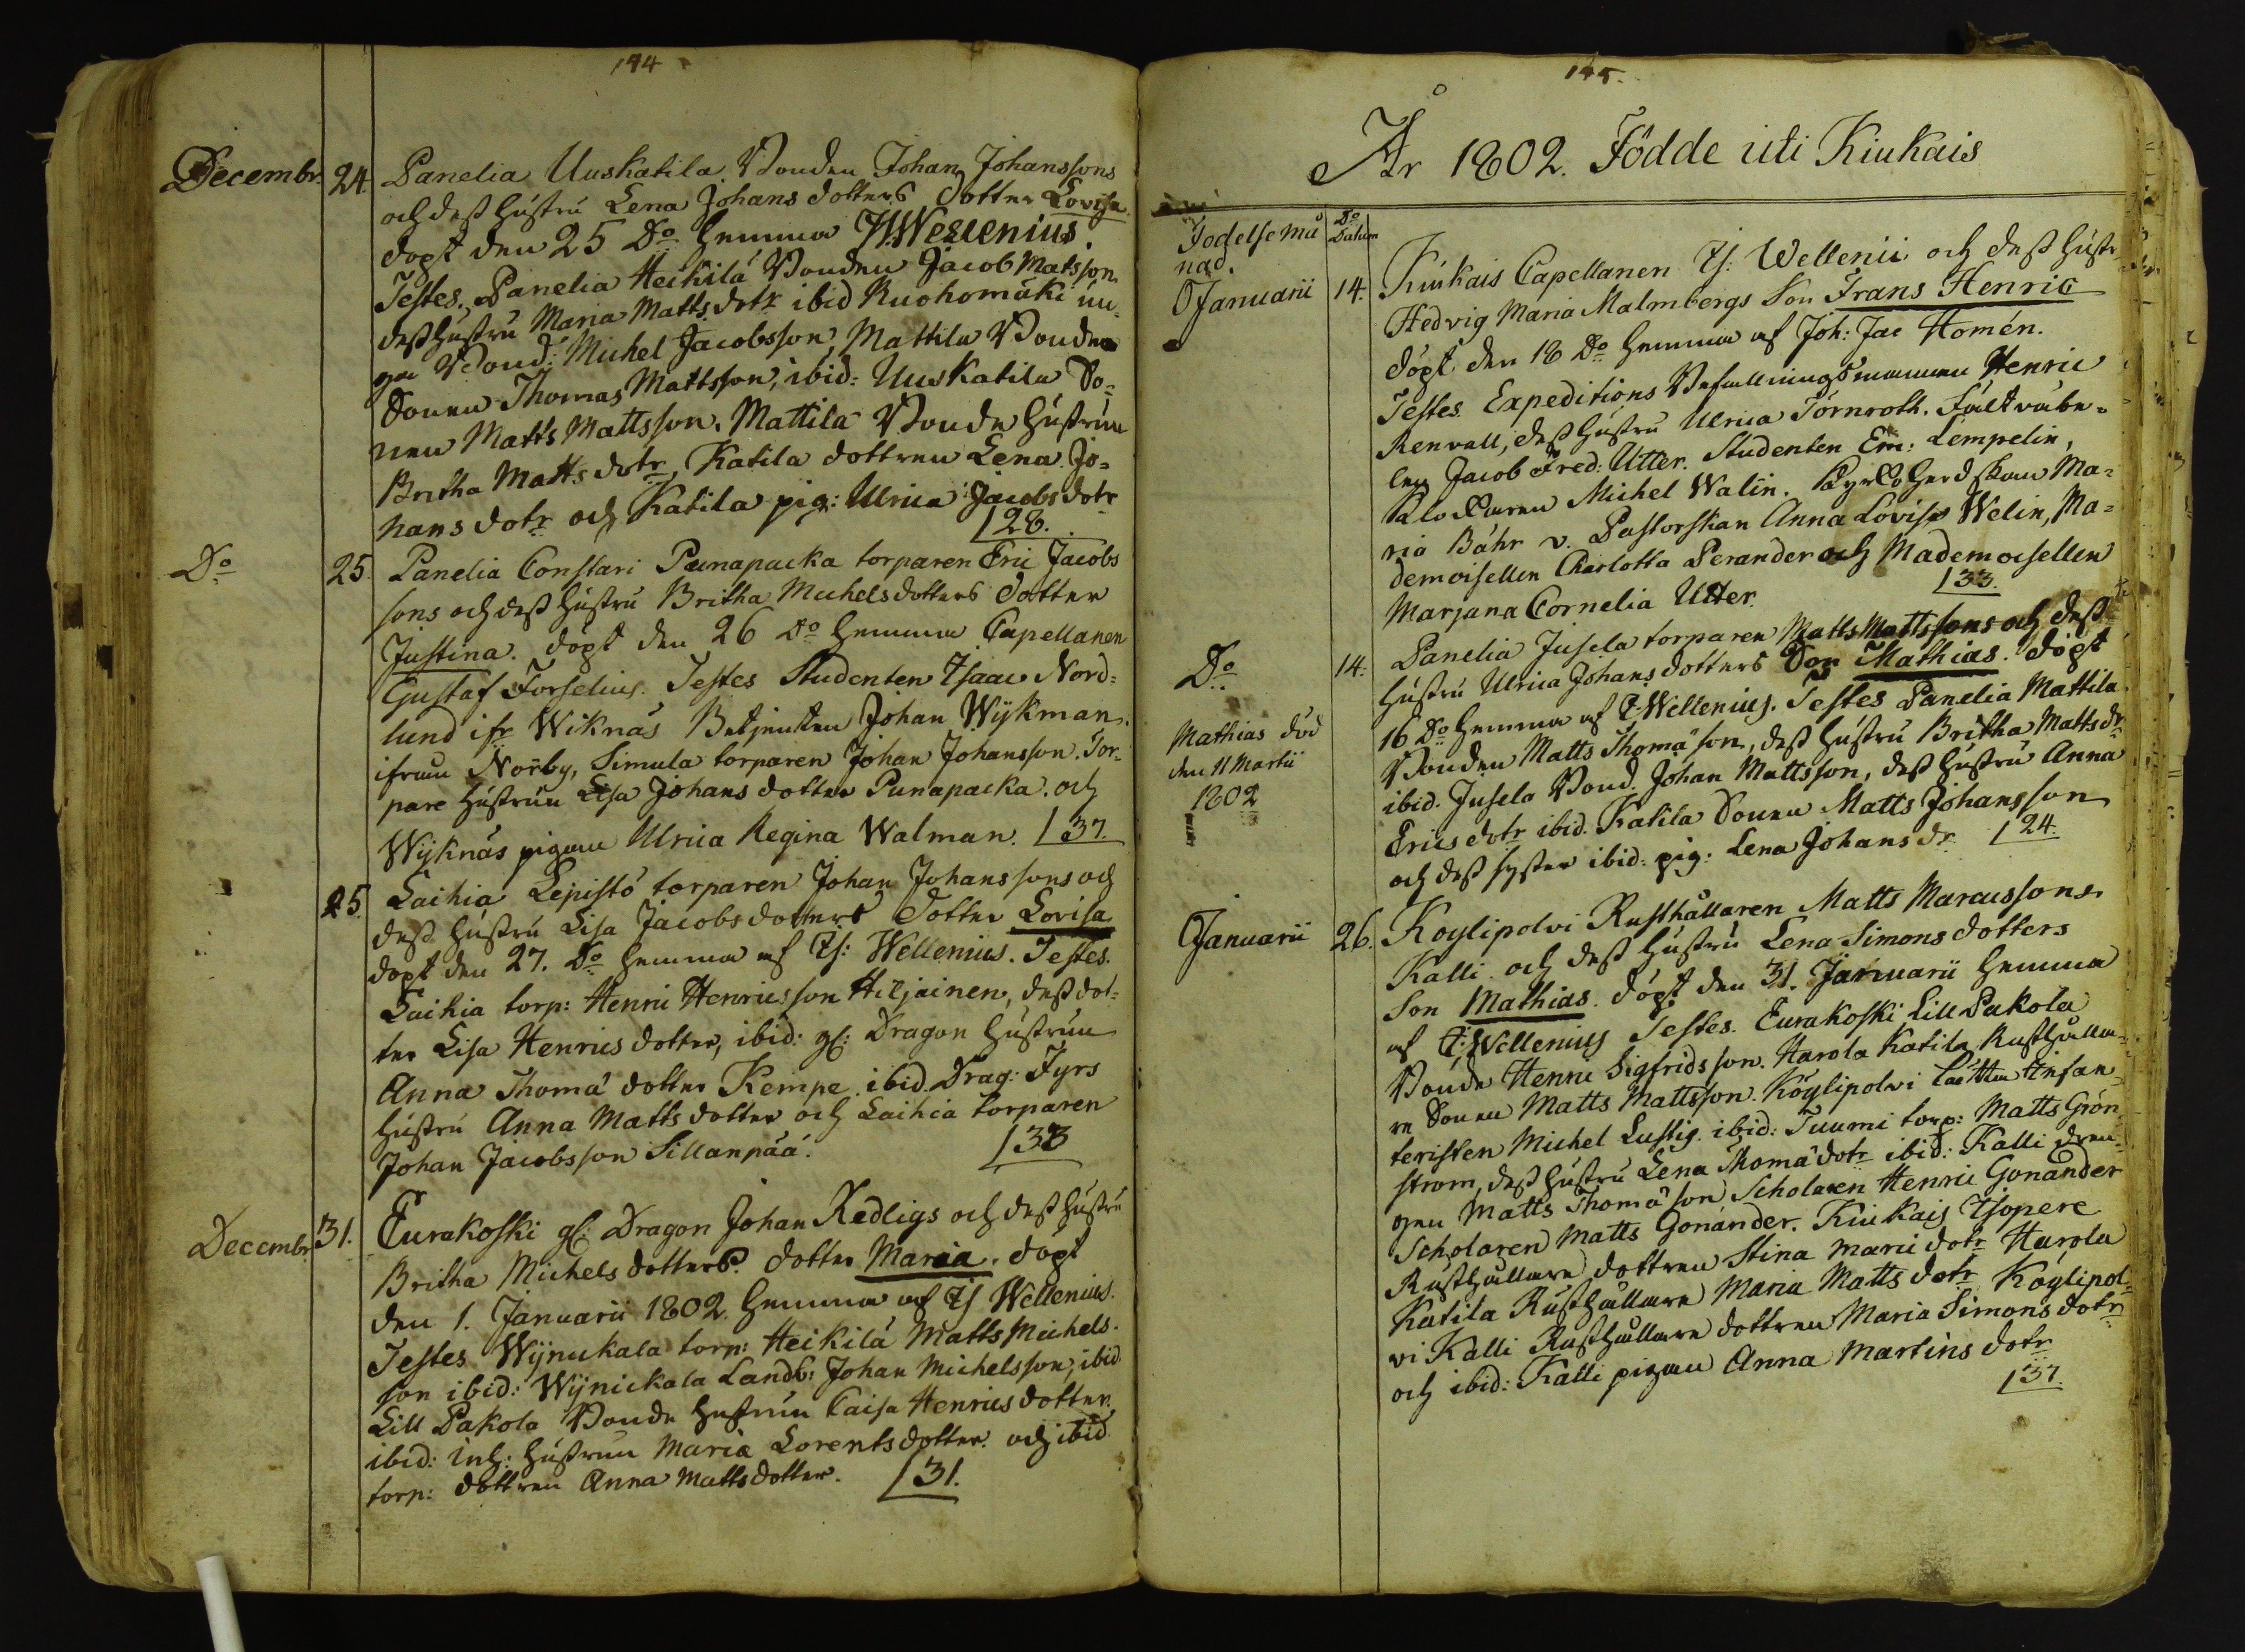 144
Decembr. 24 Panelia Uuskatila Bonden Johan Johanssons
och dess hustru Lena Johans dotters dotter Lovisa
döpt den 25 Do hemma Is Wellenius.
Testes. Panelia Heikilä Bonden Jacob Matsson
dess hustru Maria Matts dotr ibid Ruohomäki un¬
ga Bond: Michel Jacobsson, Mattila Bonde
Sonen Thomas Mattsson, ibid: Uuskatila So¬
nen Matts Mattsson. Mattila Bonde hustrun
Britha Matts dotr, Katila dottren Lena Jo¬
hans dotr och Katila pig: Ulrica Jacobs dotr
28.
Do 25. Panelia Constari Punapacka torparen Eric Jacobs
sons och dess hustru Britha Michelsdotters dotter
Justina. döpt den 26 Do hemma Capellanen
Gustaf Forselius. Testes Studenten Isaac Nord¬
lund ifr Wiknäs Betjenten Johan Wÿkman
ifrån Norby, Simula torparen Johan Johansson. Tor¬
pare hustrun Lisa Johans dotter Punapacka. och
Wÿknäs pigan Ulrica Regina Walman. 37.
25. Laihia Lepistö torparen Johan Johanssons och
dess hustru Lisa Jacobsdotters dotter Lovisa
döpt den 27. Do hemma af Is: Wellenius. Testes.
Laihia torp: Henric Henricsson Hiljainen, dess dot¬
ter Lisa Henrics dotter, ibid: gl: Dragon hustrun
Anna Thomæ dotter Kempe. ibid. Drag: Fyrs
hustru Anna Matts dotter och Laihia torparen
Johan Jacobsson Sillanpää. 33
Decembr 31. Eurakoski gl: Dragon Johan Redligs och dess hustru
Britha Michels dotters. dotter Maria. döpt
den 1. Januarii 1802. hemma af Is Wellenius.
Testes Wÿnukala torp: Heikilä Matts Michels¬
son ibid: Wÿnickala Landb: Johan Michelsson, ibid
Lill Pakola Bonde hustrun Caisa Henrics dotter,
ibid: inh: hustrun Maria Lorents dotter. och ibid
torp: dottren Anna Matts dotter. 31.
145.
År 1802. Födde uti Kiukais
Födelse må
nad. Do Datum
Januarii 14. Kiukais Capellanen Is: Wellenii och dess hustr
Hedvig Maria Malmbergs Son Frans Henric
döpt den 18 Do hemma af Joh: Jac Homén.
Testes. Expeditions Befallningsmannen Henric
Renvall, dess hustru Ulrica Törnroth. Fältväbe¬
len Jacob Fred: Utter. Studenten Em: Lempelin,
Klockaren Michel Walin. Kyrkoherdskan Ma¬
ria Bähr v. Pastorskan Anna Lovisa Welin, Ma¬
demoisellen Charlotta Perander och Mademoisellen
Marjana Cornelia Utter. 33.
Do 14. Panelia Jusela torparen Matts Mattssons och dess
hustru Ulrica Johans dotters Son Mathias. döpt
16 Do hemma af I: Wellenius. Testes Panelia Mattila
Bonden Matts Thomæson, dess hustru Britha Matts dr
ibid. Jusela Bond. Johan Mattsson, dess hustru Anna
Erics dotr ibid. Katila Sonen Matts Johansson
och dess syster ibid: pig: Lena Johans dr 24.
Mathias död
den 11 Martii
1802
Januarii 26. Köylipolvi Rusthållaren Matts Marcussons
Kalli och dess hustru Lena Simons dotters
Son Mathias. döpt den 31. Januarii hemma
af I: Wellenius Testes. Eurakoski Lill Pakola
Bonde Henric Sigfridsson. Harola Katila Rusthålla¬
re Sonen Matts Mattsson. Köylipolvi Lätta Infan¬
teristen Michel Lustig. ibid: Tuumi torp: Matts Grön¬
strom, dess hustru Lena Thomæ dotr ibid: Kalli drän¬
gen Matts Thomæson Scholaren Henric Gonander
Scholaren Matts Gonander. Kiukais Isopere
Rusthållare dottren Stina Marci dotr Harola
Katila Rusthållare Maria Matts dotr Köylipol¬
vi Kalli Rusthållare dottren Maria Simons dotr
och ibid: Kalli pigan Anna Martins dotr
37.